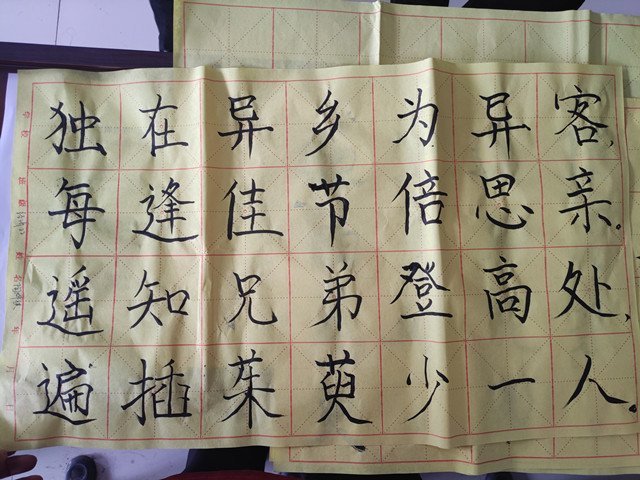 独在异乡为异客,
每逢佳节倍思亲。
遥知兄弟登高处,
遍插茱萸少一人。